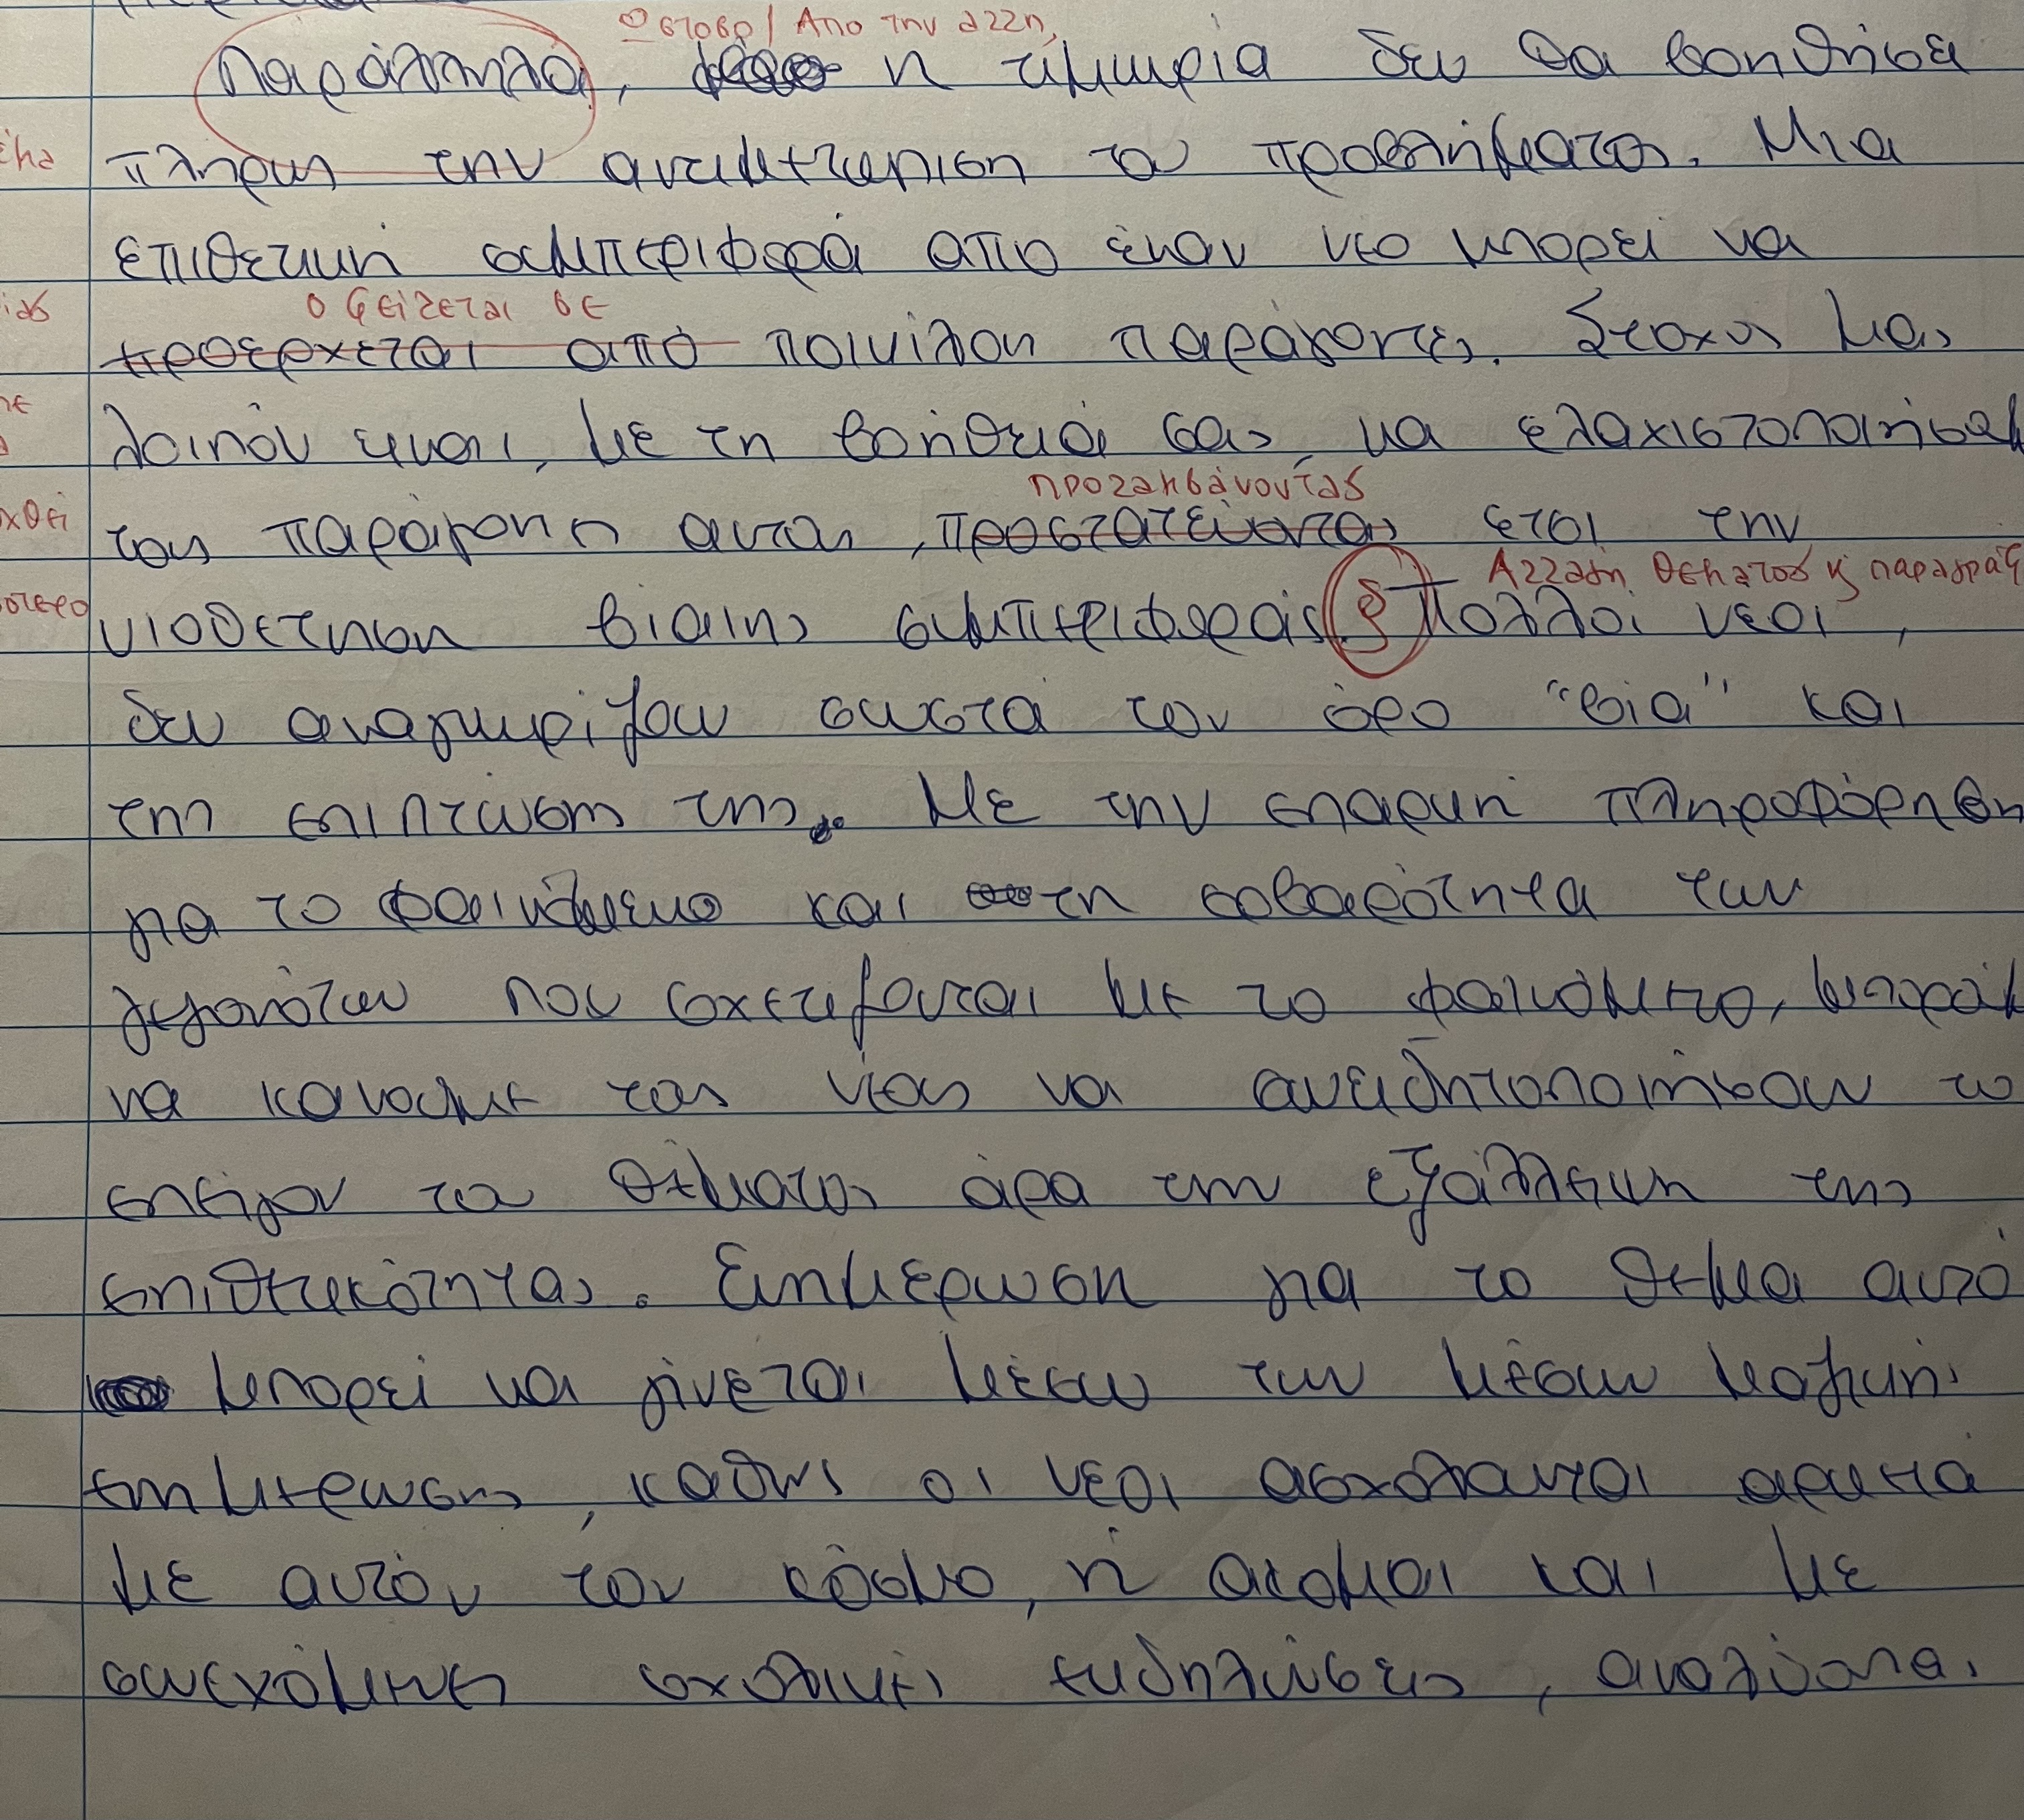 Ωστόσο / Από την άλλη,
Παράλληλα, η τιμωρία δεν θα βοηθήσει
πλήρως την αντιμετώπιση του προβλήματος. Μια
επιθετική συμπεριφορά από έναν νέο μπορεί να
οφείλεται σε
προέρχεται από ποικίλον παράγοντες. Στόχος μας
λοιπόν είναι, με τη βοήθειά σας, να ελαχιστοποιήσουμ
προλαμβάνοντας
τους παράγοντες αυτούς, προστατεύοντας έτσι την
υιοθέτηση βίαιης συμπεριφοράς. § Πολλοί νέοι,
Αλλαγή θέματος κ παραγράφ
δεν αναγνωρίζουν σωστά τον όρο "βία" και
της επίπτωσης της. Με την επαρκή πληροφόρηση
για το φαινόμενο και τη σοβαρότητα των
γεγονότων που σχετίζονται με το φαινόμενο, μπορούμ
να κάνουμε τους νέους να συνειδητοποιήσουν το
επείγον του θέματος άρα την εξάλειψη της
επιθετικότητας. Ενημέρωση για το θέμα αυτό
μπορεί να γίνεται μέσω των μέσων μαζικής
ενημέρωσης, καθώς οι νέοι ασχολούνται αρκετά
με αυτόν τον κόσμο, ή ακόμαι και με
συνεχόμενες σχολικές εκδηλώσεις, αναλύοντας